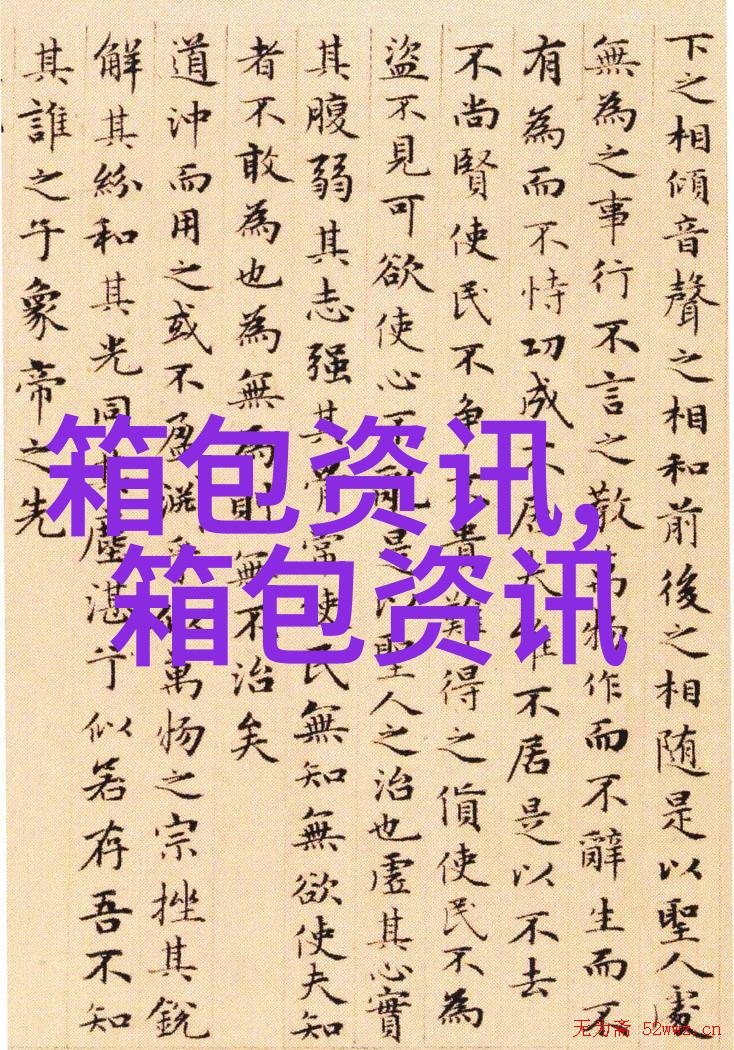 下之相傾音聲之相和前後之相随是以聖人處
無為之事行不言之教萬物作而不辭生而不
有為而不恃功成不居夫唯不居是以不去
不尚賢使民不争不貴難得之貨使民不為
盜不見可欲使心不亂是以聖人之治也虛其心實
其腹弱其志强其骨常使民無知無欲使夫知
者不敢為也為無為則無不治矣
道沖而用之或不盈淵乎似萬物之宗挫其銳
解其紛和其光同其塵湛兮似若存吾不知
其誰之子象帝之先
箱包资讯,
箱包资讯
无为斋 52wwz.cn